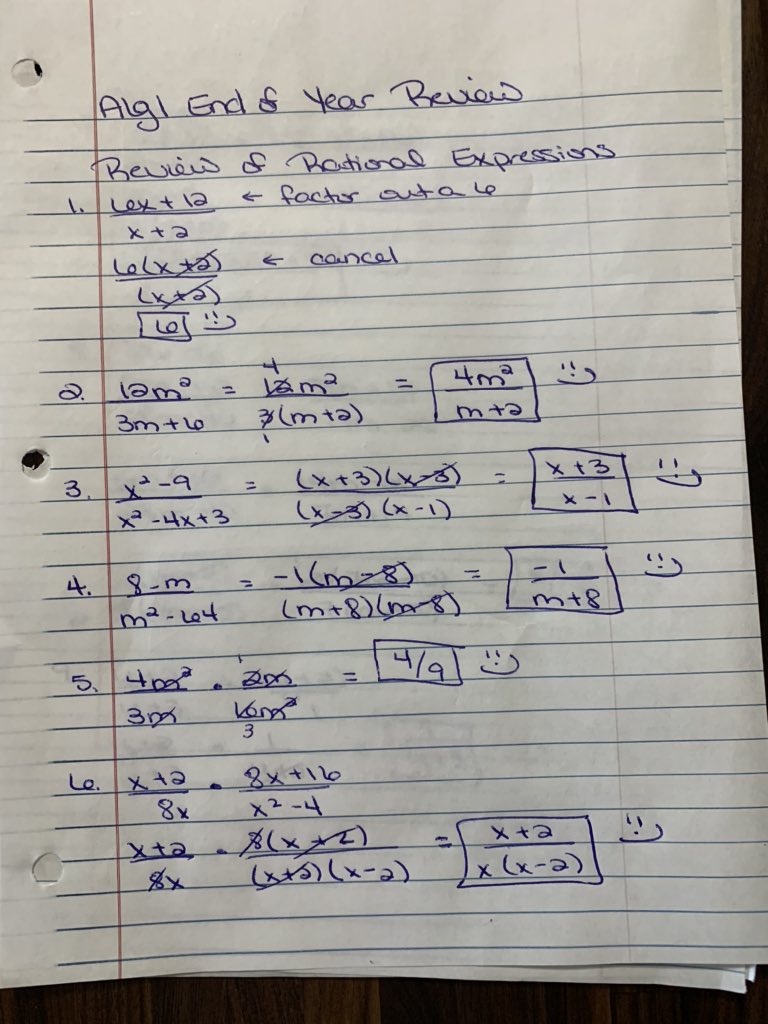 Alg1 End of Year Review
Review of Rational Expressions
1. 6x + 12 ← factor out a 6
x + 2
6(x+2) ← cancel
(x+2)
6 :)
2. 12m² / 3m+6 = 12m² / 3(m+2) = 4m² / m+2 :)
4
1
3. x² - 9 / x² - 4x + 3 = (x+3)(x-3) / (x-3)(x-1) = x+3 / x-1 :)
4. 8-m / m² - 64 = -1(m-8) / (m+8)(m-8) = -1 / m+8 :)
5. 4m² / 3m · 2m / 6m² = 4/9 :)
1
3
6. x+2 / 8x · 8x+16 / x² - 4
x+2 / 8x · 8(x+2) / (x+2)(x-2) = x+2 / x(x-2) :)